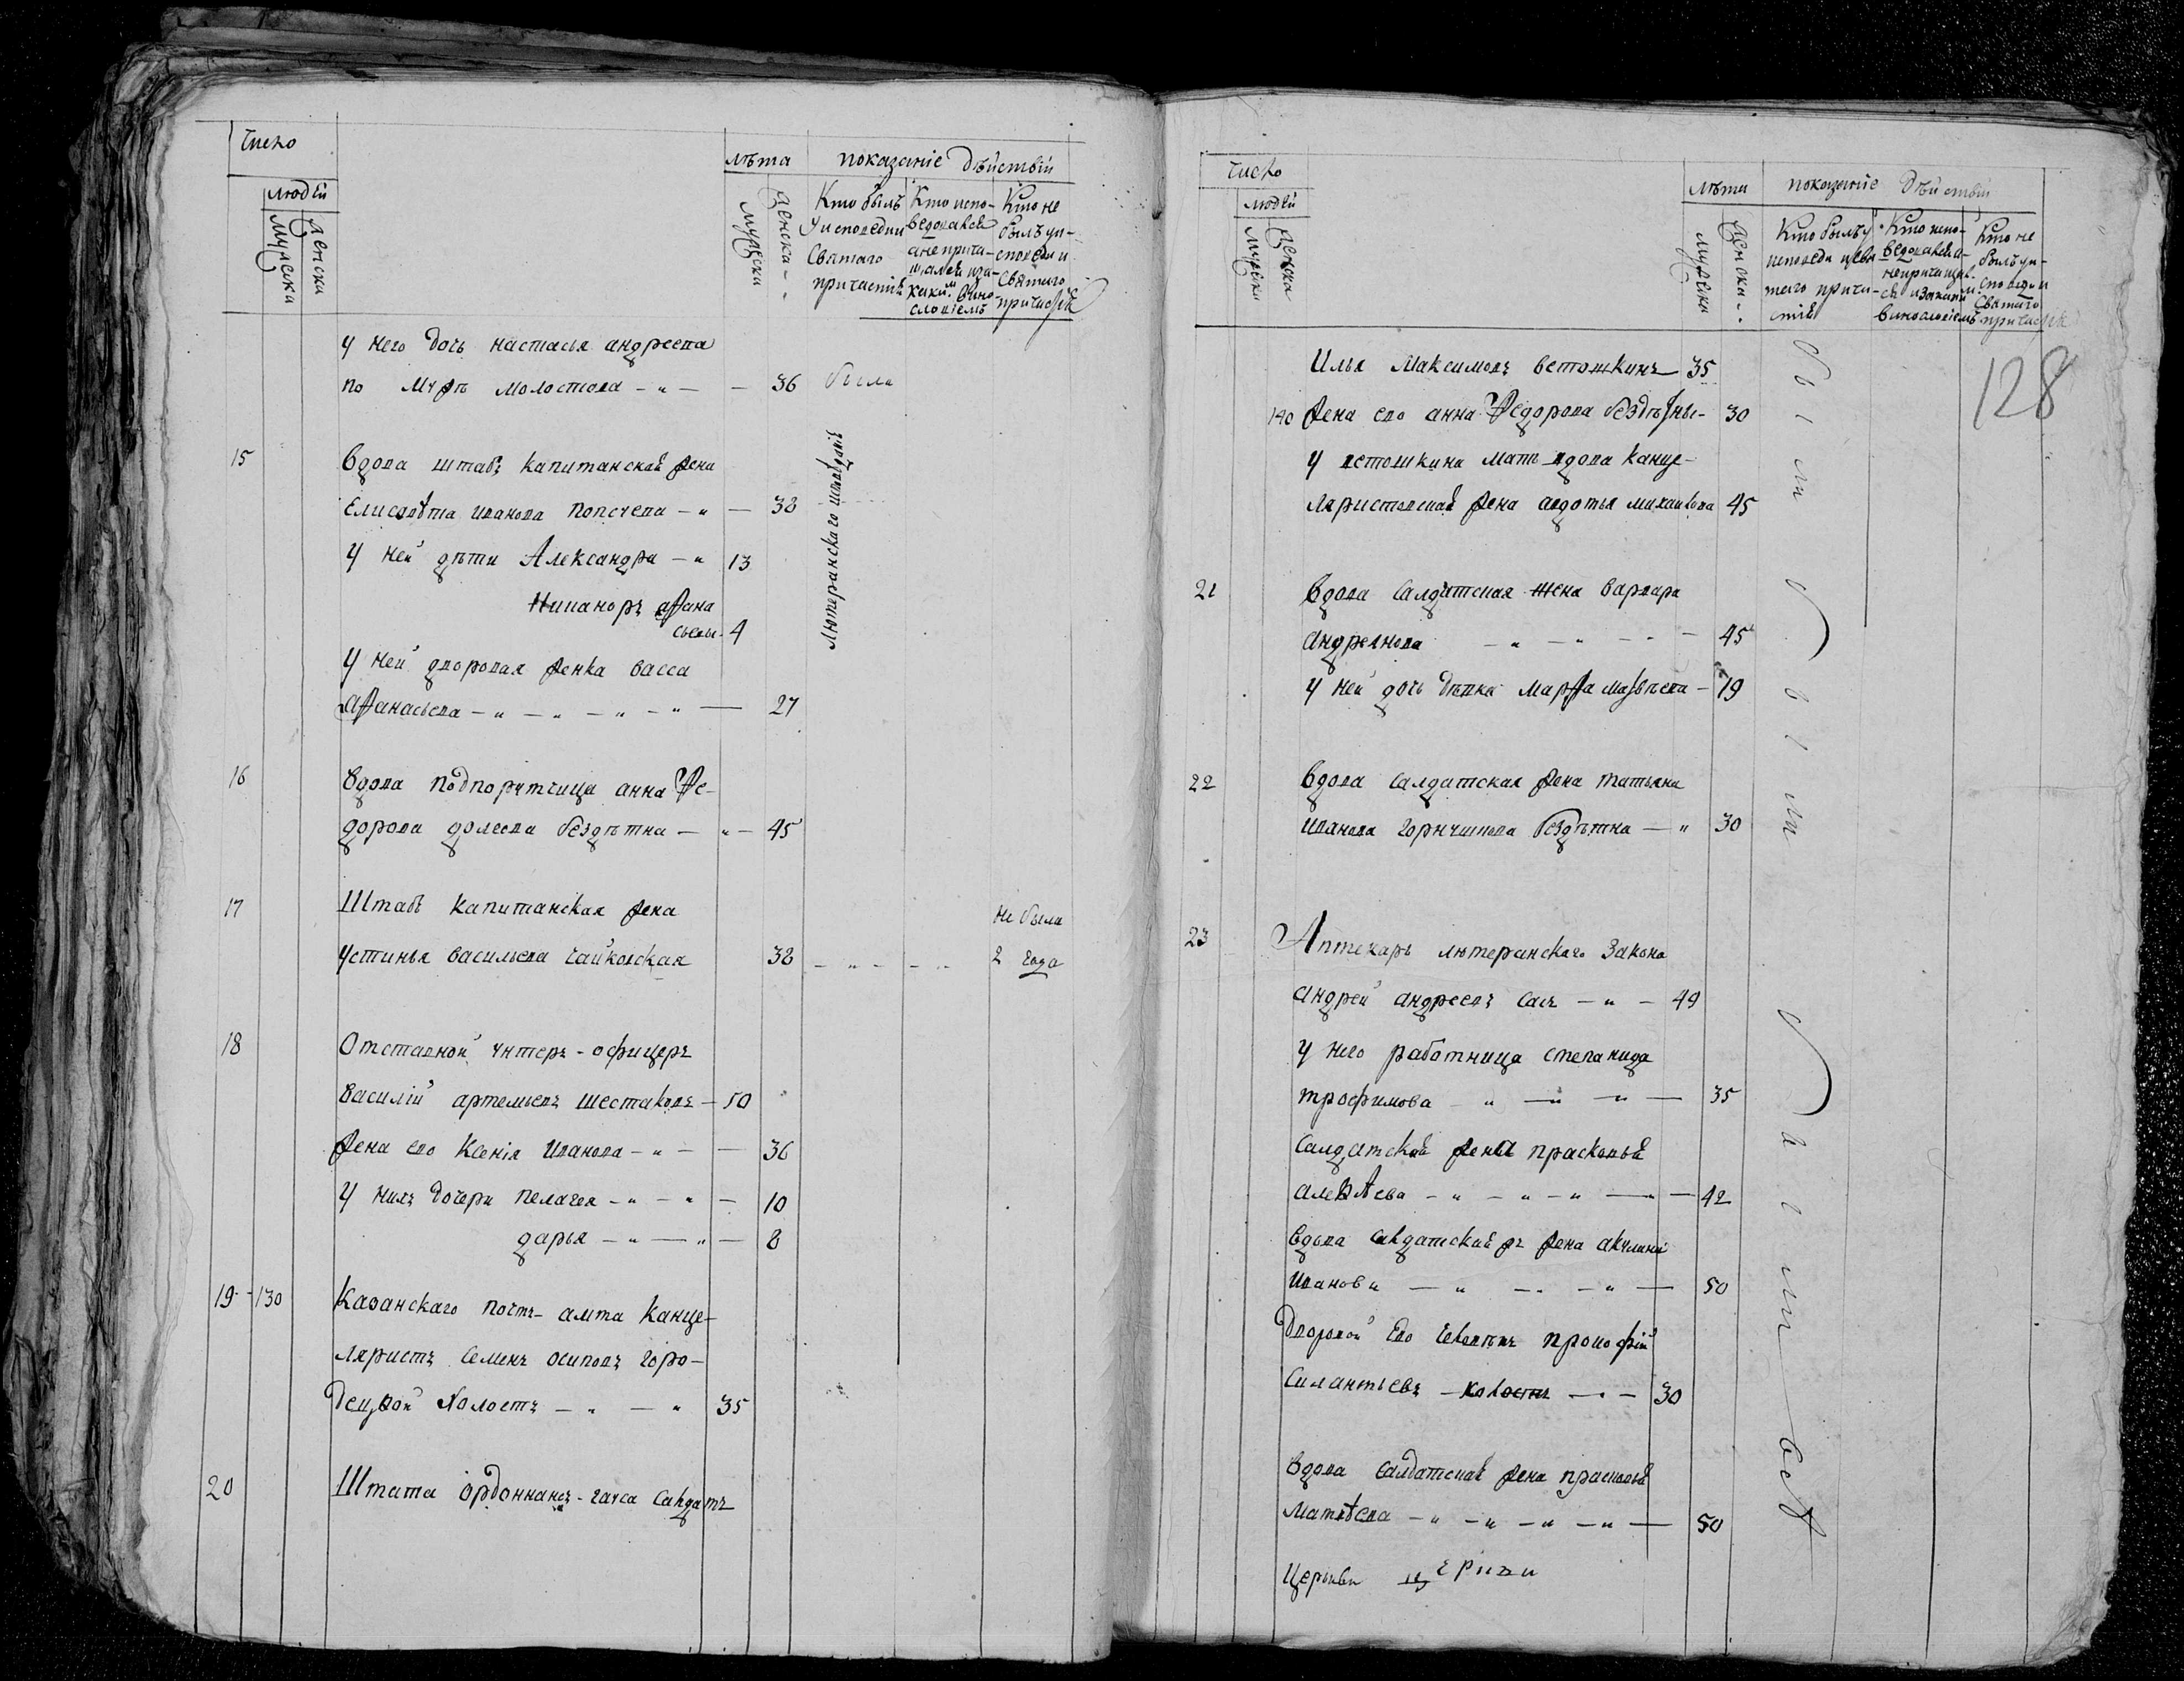 Число
людей
мужеска
женска
лѣта
мужеска
женска
показаніе дѣйствій
Кто былъ у исповеди Святаго причастія
Кто испо-
ведовался
а не прича-
щался и за
каким вино-
словіемъ
Кто не
былъ у и-
споведи и
Святаго
причастія
у него дочь настасья андреева
по мужѣ молостова - " - - 36 была
15 вдова штабъ капитанская жена
Елисавѣта иванова попечева - " - 38
Лютеранскаго
у ней дѣти Александра - " 13
Никаноръ афана
сьевы - 4
у ней дворовая женка васса
афанасьева - " - " - " - " - 27
16 вдова подпорутчица анна Фе-
дорова долеева бездѣтна - " - 45
17 Штабъ капитанская жена
устинья васильева чайковская 38 - " - - " не была 2 года
18 Отставной унтеръ-офицеръ
василій артемьевъ шестаковъ - 50
жена ево Ксенія Иванова - " - - 36
у нихъ дочери пелагея - " - " - 10
дарья - " - " - 8
19 - 130 Казанскаго почтъ-амта Канце-
ляристъ семенъ осиповъ горо-
децкой холостъ - " - " 35
20 Штата ордоннансъ-гауса салдатъ
Число
людей
мужеска
женска
лѣта
мужеска
женска
показаніе дѣйствій
Кто былъ у
исповеди и свя
таго прича-
стія
Кто испо-
ведовался а
не причащал-
ся и за каким
винословіемъ
Кто не
былъ у и-
споведи и
Святаго
причастія
128
Илья Максимовъ ветошкинъ 35 были
140 жена ево анна Федорова бездѣтны - 30
у ветошкина мать вдова канце-
ляристовская жена авдотья михаилова 45
21 вдова салдатская жена варвара
андреянова - " - " - " - 45 были
у ней дочь дѣвка марфа матвѣева - 19
22 вдова салдатская жена татьяна
иванова горнчшнова бездѣтна - " 30
23 Аптекарь лютеранскаго закона
андрей андреевъ сасъ - " - 49
у него работница степанида
трофимова - " - " - " - 35
салдатская жена прасковья
алеѣева - " - " - " - " - 42
вдова салдатская жена акулина
Иванова - " - - " - 50
Дворовой Ево человѣкъ прокофій
Силантьевъ - холостъ - " - 30
вдова салдатская жена прасковья
матвѣева - " - " - " - " - 50
Церькви